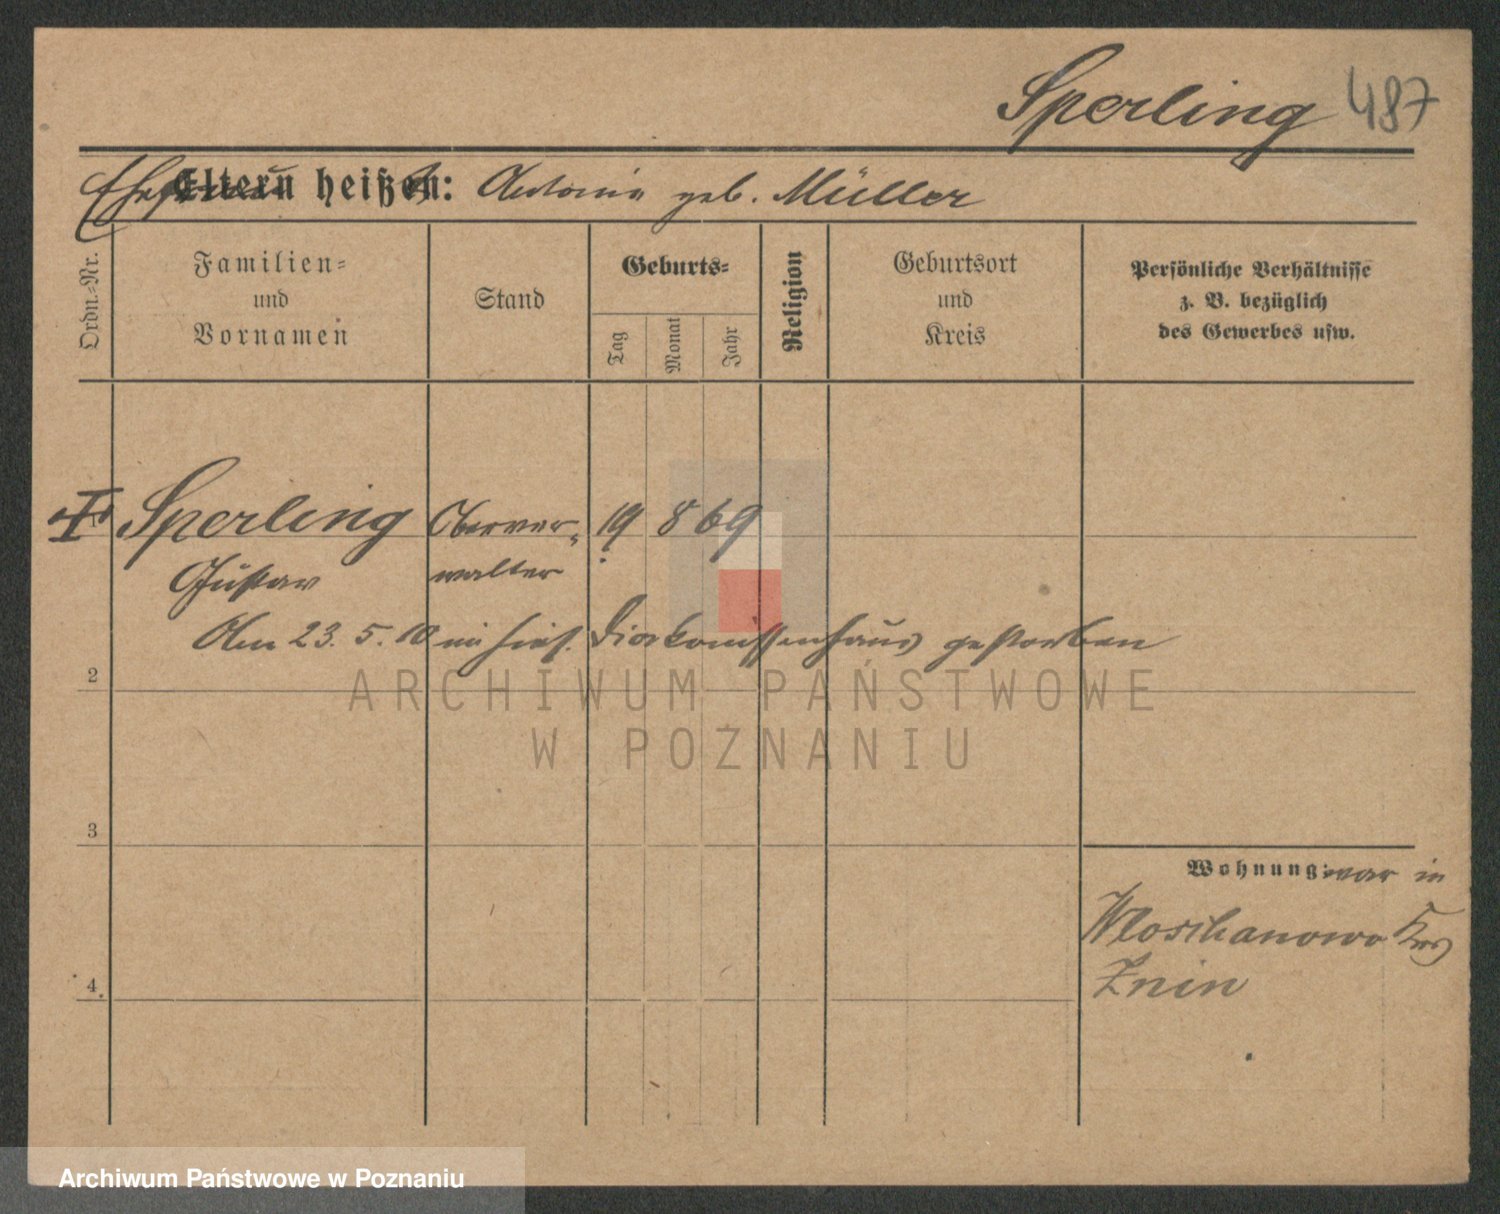 Sperling 487
Ehefrau heißt: Antonie geb. Müller
Ordn.-Nr.
Familien-
und
Vornamen
Stand
Geburts-
Tag
Monat
Jahr
Religion
Geburtsort
und
Kreis
Persönliche Verhältnisse
z. B. bezüglich
des Gewerbes usw.
Sperling Oberver- 19 8 69
Gustav walter
Am 23. 5. 10 im hies. Diakonissenhaus gestorben
2
ARCHIWUM PAŃSTWOWE
W POZNANIU
3
Wohnung: war in
Wloschanowo Krs
4.
Znin
Archiwum Państwowe w Poznaniu